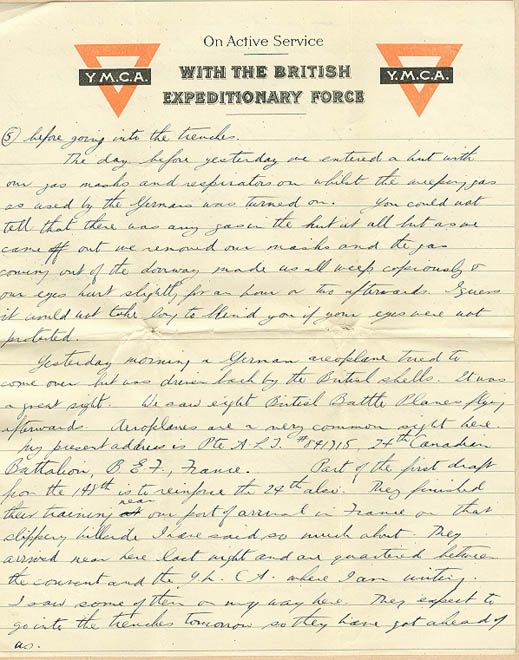 On Active Service
Y.M.C.A. WITH THE BRITISH Y.M.C.A.
EXPEDITIONARY FORCE
(5) before going into the trenches.
The day before yesterday we entered a hut with
our gas masks and respirators on whilst the weeping gas
as used by the Germans was turned on. You could not
tell that there was any gas in the hut at all but as we
came off out we removed our masks and the gas
coming out of the doorway made us all weep copiously &
our eyes hurt slightly for an hour or two afterwards. I guess
it would not take long to blind you if your eyes were not
protected.
Yesterday morning a German areoplane tried to
come over but was driven back by the British shells. It was
a great sight. We saw eight British Battle Planes flying
afterwards. Aeroplanes are a very common sight here.
My present address is Pte A.L.J. #841715, 24th Canadian
Battalion, B E F, France. Part of the first draft
from the 148th is to reinforce the 24th also. They finished
their training near our port of arrival in France on that
slippery hillside I have said so much about. They
arrived near here last night and are quartered between
the convent and the Y.M.C.A. where I am writing.
I saw some of them on my way here. They expect to
go into the trenches tomorrow so they have got ahead of
us.